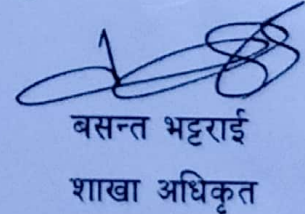 बसन्त भट्टराई
शाखा अधिकृत